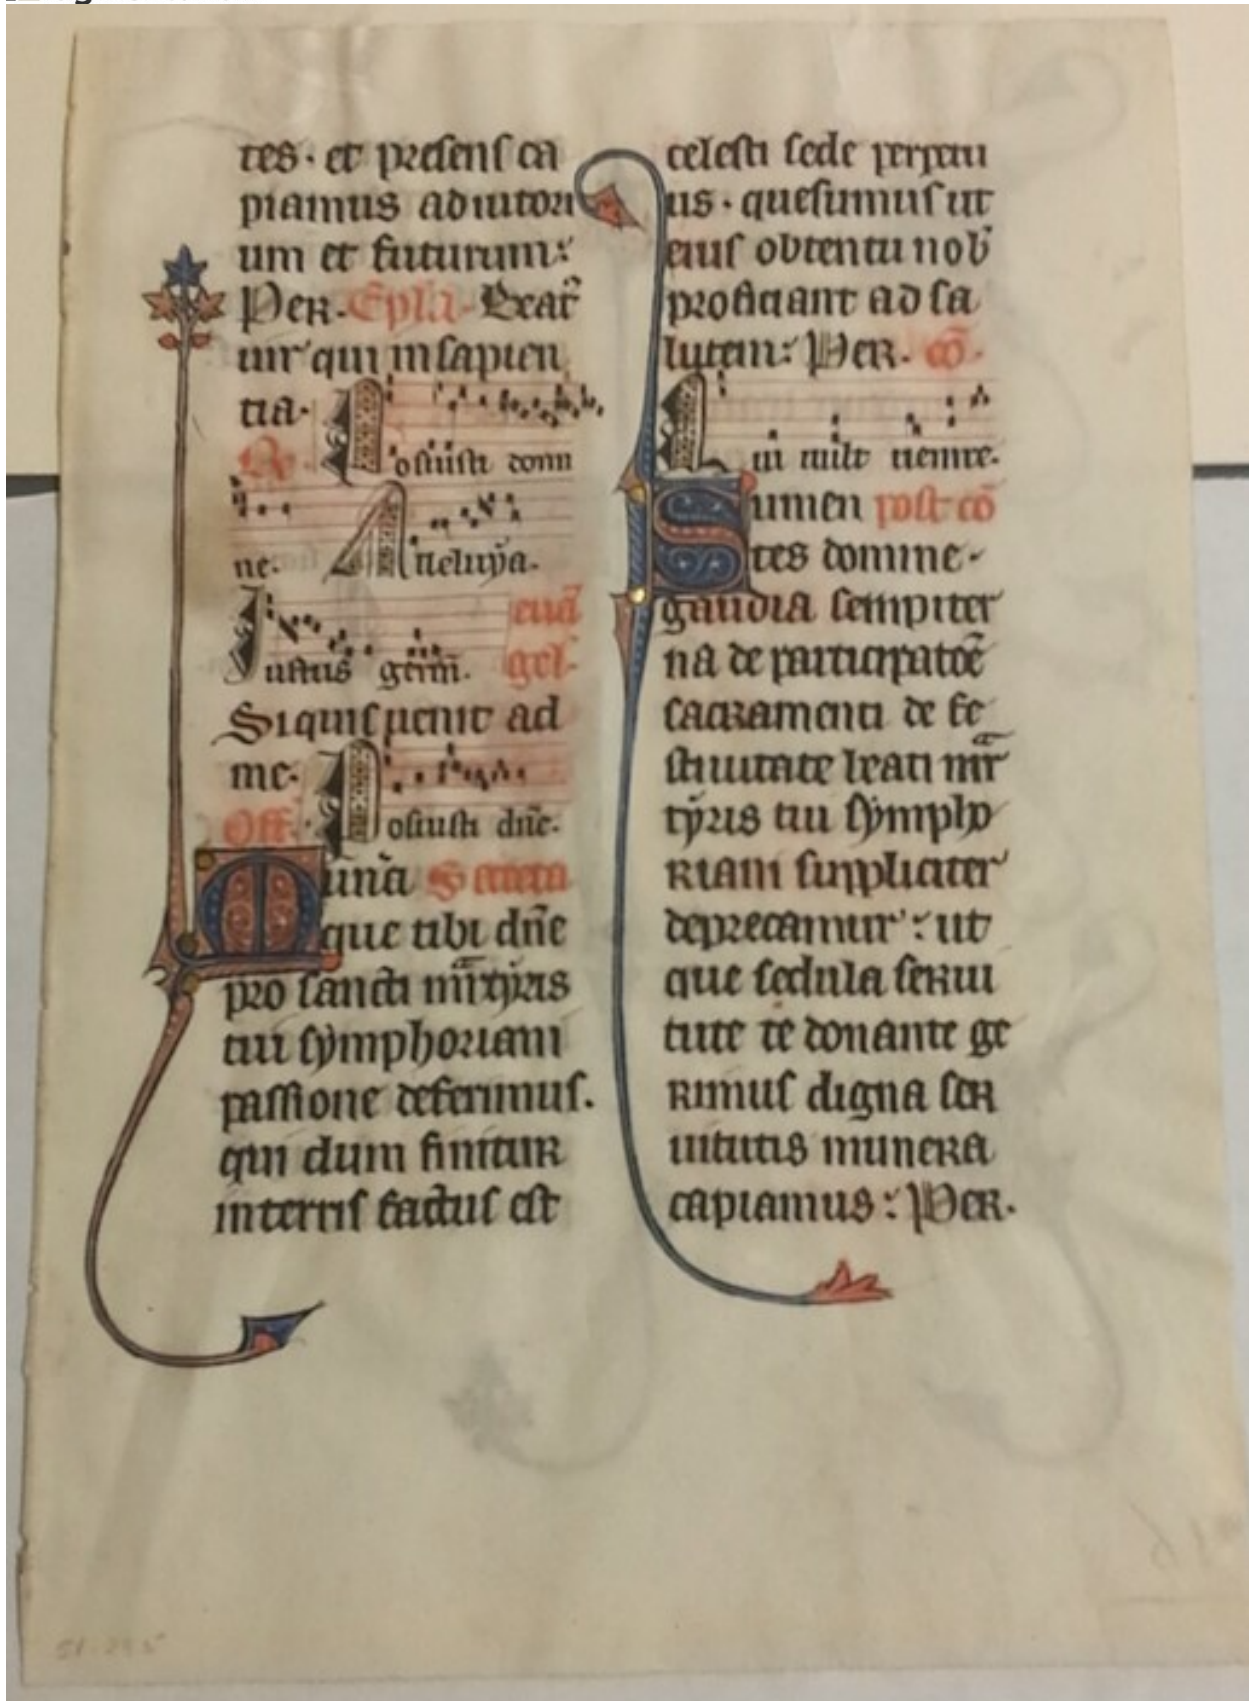 tes· et presens ca
piamus adiutori
um et futurum:
Per· Epla· Beat᷒
uir qui in sapien
tia·
R̃· Posuisti domi
ne· Alleluya·
Iustus germ̃· euã
gel·
Si quis uenit ad
me·
Off· Posuisti dñe·
Munã Secreta
que tibi dñe
pro sancti mr̃tyris
tui symphoriani
passione deferimus.
qui dum finitur
in terris factus est
celesti sede perpetu
us· quesumus ut
eius obtentu nob̃
proficiant ad sa
lutem: Per· cõ·
Qui mi᷑lt uenire·
Sumen post cõ
tes domine·
gaudia sempiter
na de participatõe
sacramenti de fe
stiuitate beati mr̃
tyris tui sympho
riani suppliciter
deprecamur: ut
que sedula serui
tute te donante ge
rimus digna ser
uitutis munera
capiamus: Per·